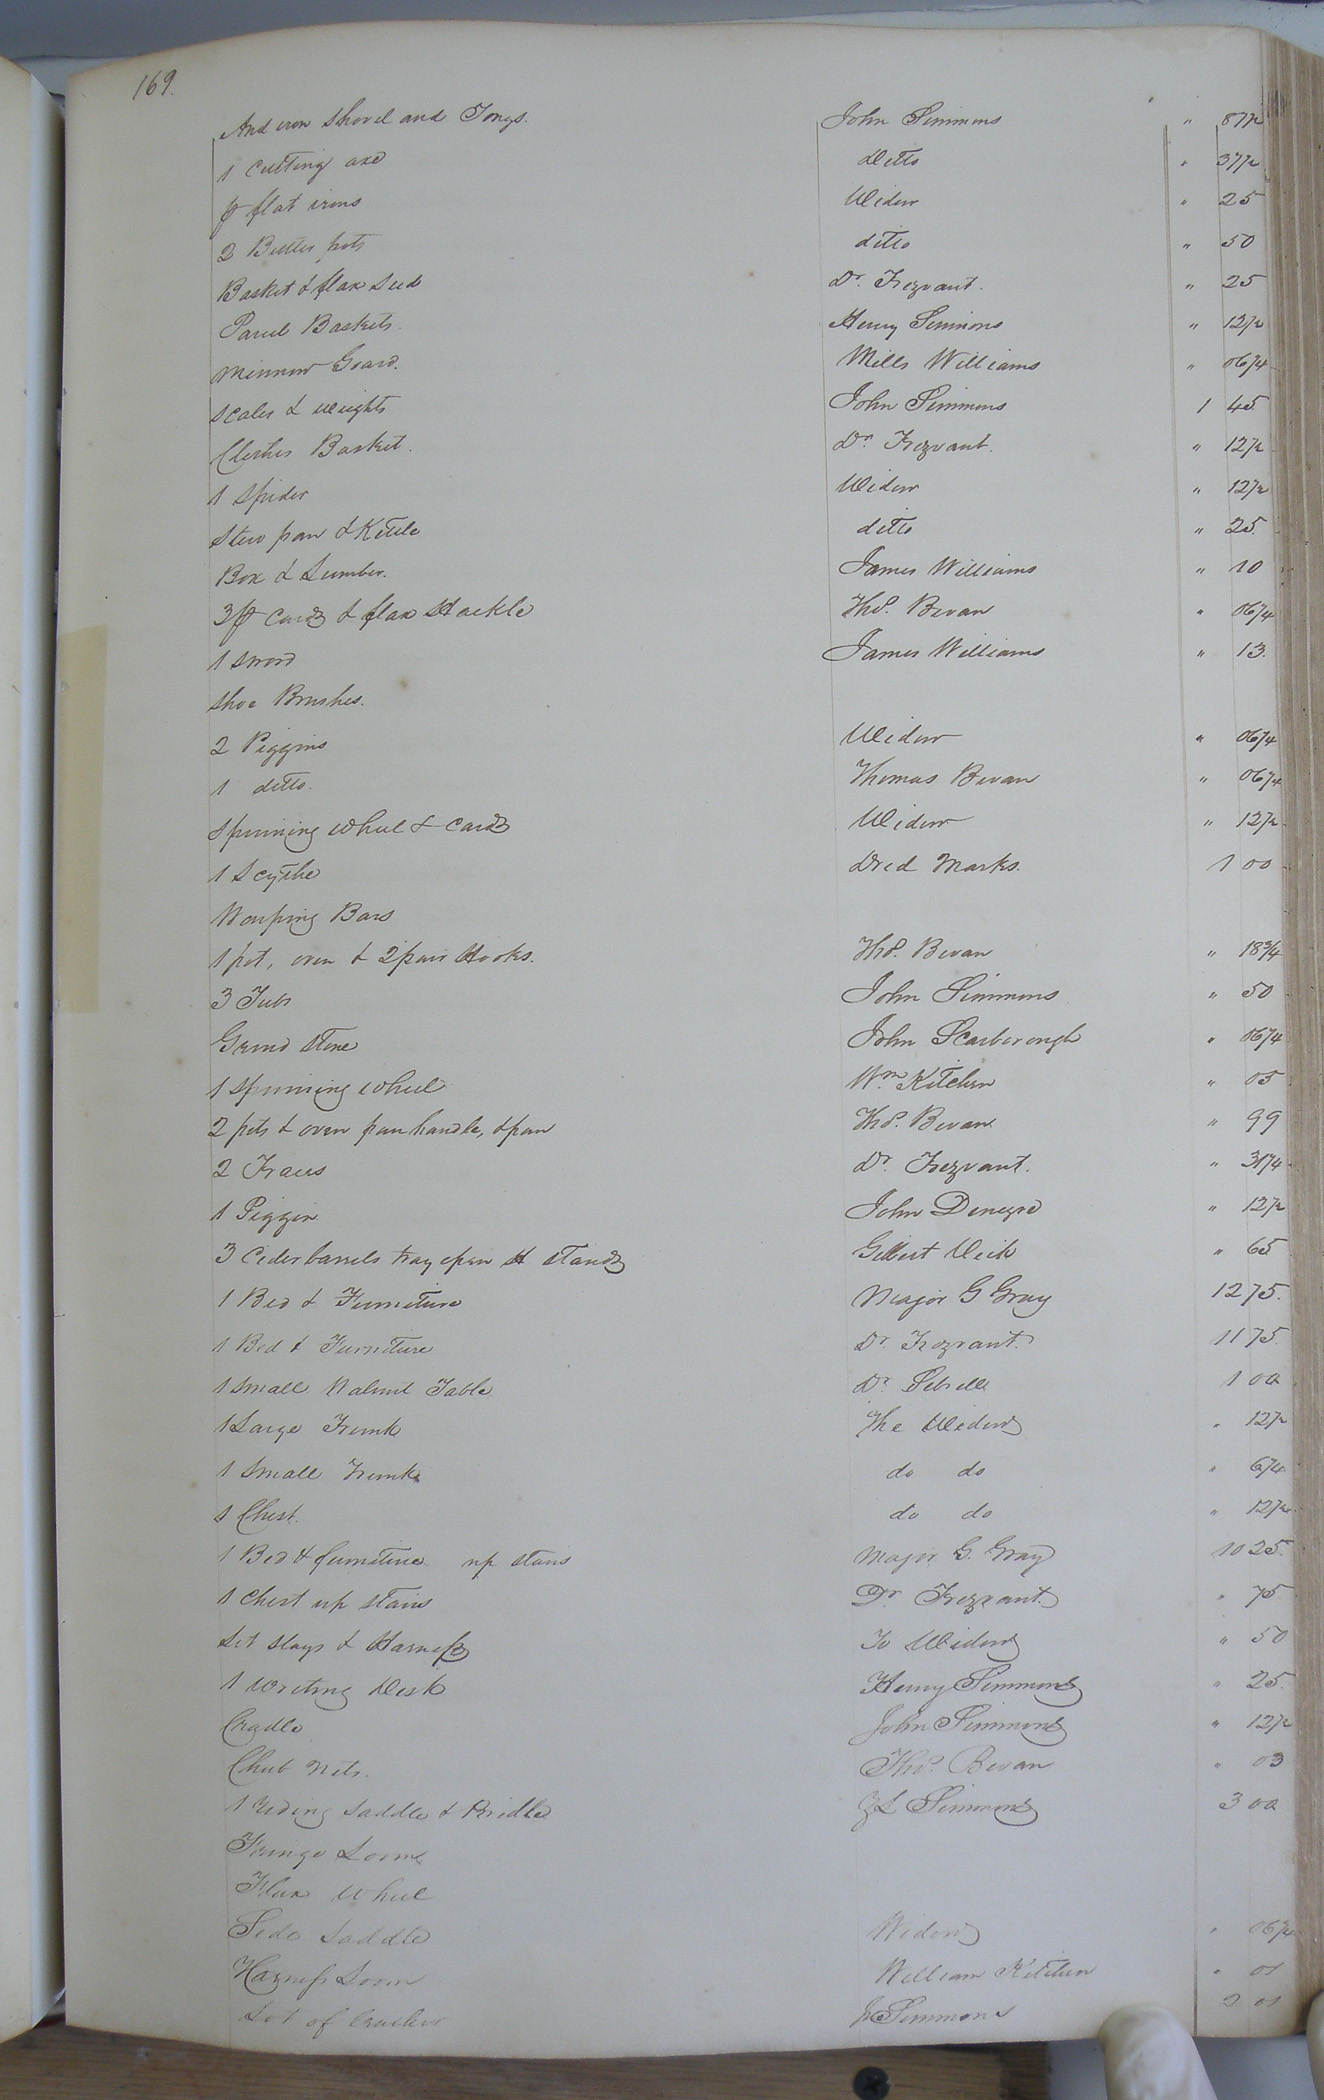 169.
And iron Shovel and Tongs. John Simmons " 87½
1 Cutting axe Ditto " 37½
pr flat irons Widow " 25
2 Butter pots ditto " 50
Basket & flax seed Dr. Trezvant. " 25
Parcel Baskets. Henry Simmons " 12½
Minnow Goard. Mills Williams " 06¼
Scales & weights John Simmons 1 45
Clothes Basket. Dr. Trezvant. " 12½
1 Spider Widow " 12½
Stew pan & Kettle ditto " 25.
Box & Lumber. James Williams " 10
3 pr Cards & flax Hackle Thos. Bevan " 06¼
1 Sword James Williams " 13.
Shoe Brushes.
2 Piggins Widow " 06¼
1 ditto. Thomas Bevan " 06¼
Spinning wheel & Cards Widow " 12½
1 Scythe Dred Marks. 1 00
Warping Bars
1 pot, oven & 2 pair Hooks. Thos. Bevan " 18¾
3 Tubs John Simmons " 50
Grind Stone John Scarborough " 06¼
1 Spinning wheel Wm. Kitchen " 05
2 pots & oven pan handle, & pan Thos. Bevan " 99
2 Trays Dr. Trezvant. " 31¼
1 Piggin John Denegre " 12½
3 Cider barrels tray open H Stands Gilbert " 65
1 Bed & Furniture Major G Gray 12 75.
1 Bed & Furniture Dr. Trezvant. 11 75
1 Small Walnut Table Dr. Sebrell 1 00
1 Large Trunk The Widow " 12½
1 Small Trunk do do " 6¼
1 Chest. do do " 12½
1 Bed & furniture up stairs Major G. Gray 10 25.
1 Chest up stairs Dr Trezvant. " 75
Set Slays & Harness To Widow " 50
1 Writing Desk Henry Simmons " 25.
Cradle John Simmons " 12½
Chub Nets. Thos. Bevan " 03
1 Riding Saddle & Bridle Simmons 3 00
Fringe Loom
Flax Wheel
Side Saddle Widow " 06¼
Harness Loom William Kitchen " 01
Lot of Simmons 2 01